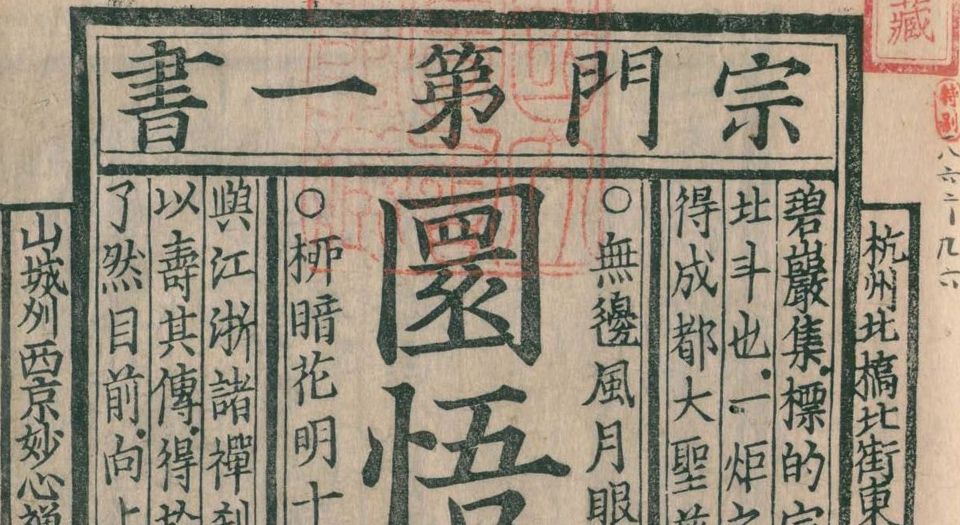 宗門第一書
藏
特別
八六二-九六
杭州北橋北街東
碧巖集.標的
北斗也.一炬
得成都大聖
○無邊風月眼
圜悟
○柳暗花明十
與江浙諸禪刹
以壽其傳.得
了然目前.向上
山城州西京妙心禪